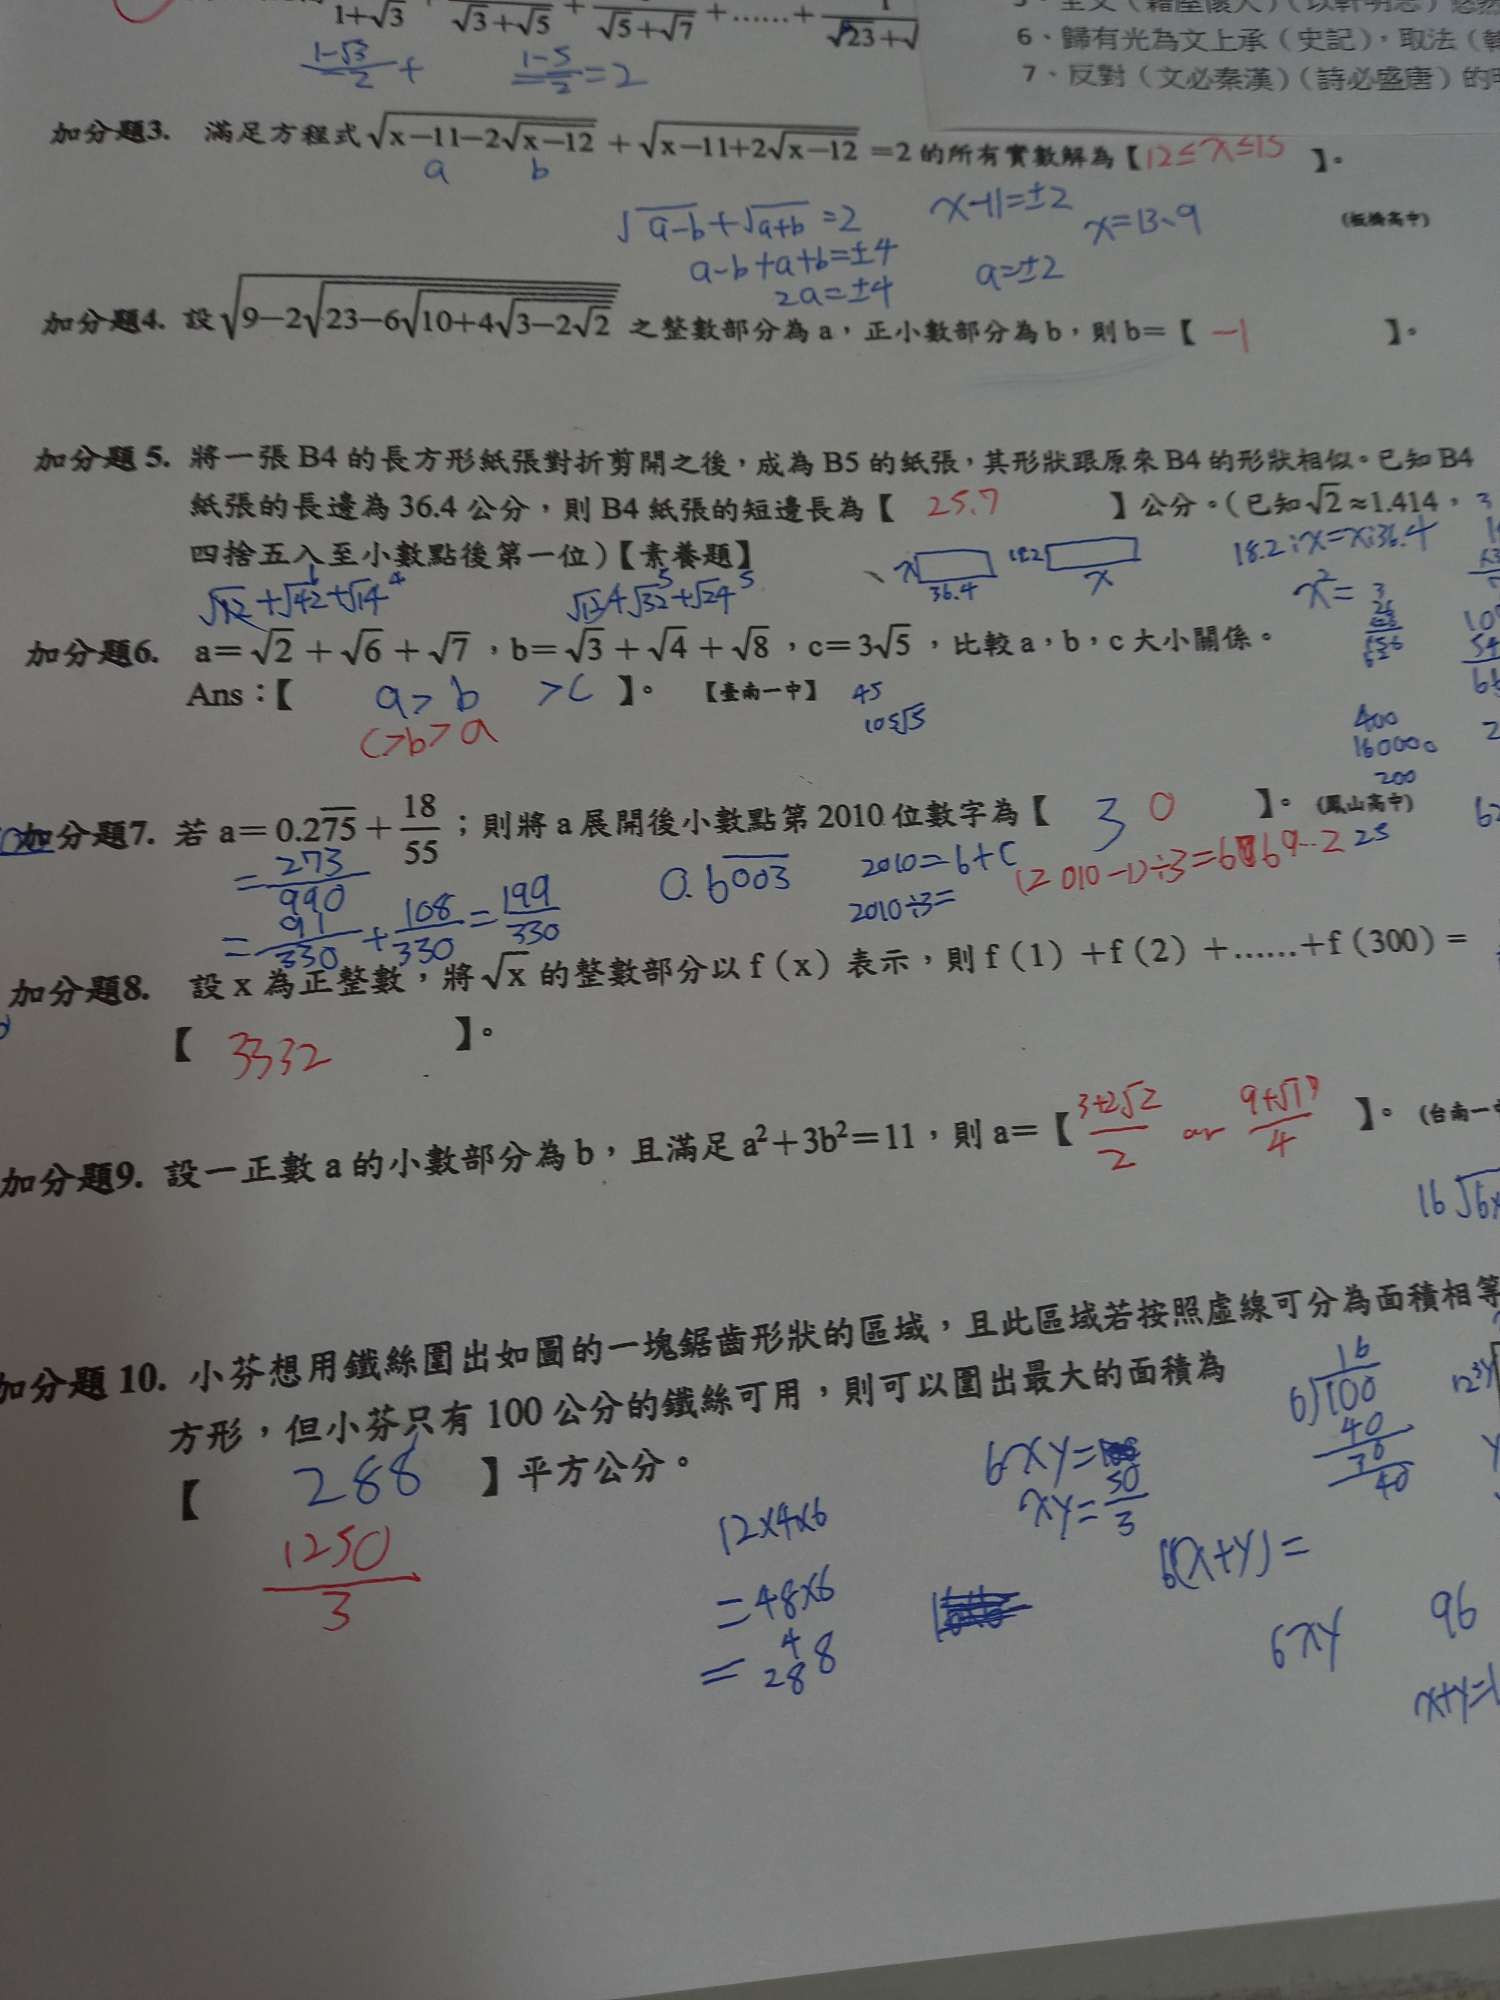 1+√3 √3+√5 + √5+√7 +……+ √23+√
(1−√3)/−2 + (1−5)/−2 =2
6、歸有光為文上承（史記），取法（韓
7、反對（文必秦漢）（詩必盛唐）的
加分題3. 滿足方程式√(x−11−2√(x−12)) + √(x−11+2√(x−12)) =2 的所有實數解為【12≤x≤13 】。
a b
√(a-b)+√(a+b)=2 x-11=±2 x=13、9 （板橋高中）
a-b+a+b=±4 a=±2
2a=±4
加分題4. 設√(9−2√(23−6√(10+4√(3−2√2)))) 之整數部分為 a，正小數部分為 b，則 b=【 −1 】。
加分題 5. 將一張 B4 的長方形紙張對折剪開之後，成為 B5 的紙張，其形狀跟原來 B4 的形狀相似。已知 B4
紙張的長邊為 36.4 公分，則 B4 紙張的短邊長為【 25.7 】公分。（已知√2≈1.414，
四捨五入至小數點後第一位）【素養題】
x 36.4 18.2 x 18.2:x=x:36.4
√12+√42+√14 √12+√32+√24 x²=
加分題6. a=√2+√6+√7，b=√3+√4+√8，c=3√5，比較 a，b，c 大小關係。
Ans：【 a>b >c 】。 【臺南一中】 45
c>b>a
400
160000
200
加分題7. 若 a=0.275+18/55；則將 a 展開後小數點第 2010 位數字為【 3 0 】。（鳳山高中）
=273/990 0.6003 2010=6+C (2010-1)÷3=669…2 25
2010÷3=
=91/330+108/330=199/330
加分題8. 設 x 為正整數，將√x 的整數部分以 f（x）表示，則 f（1）+f（2）+……+f（300）=
【 3332 】。
加分題9. 設一正數 a 的小數部分為 b，且滿足 a²+3b²=11，則 a=【 (3+2√2)/2 or (9+√17)/4 】。（台南一
加分題 10. 小芬想用鐵絲圍出如圖的一塊鋸齒形狀的區域，且此區域若按照虛線可分為面積相等
方形，但小芬只有 100 公分的鐵絲可用，則可以圍出最大的面積為
【 288 】平方公分。
1250/3
6xy=
xy=50/3
16
6)100
40
36
40
12×4×6
=48×6
=288
6(x+y)=
6xy 96
x+y=1